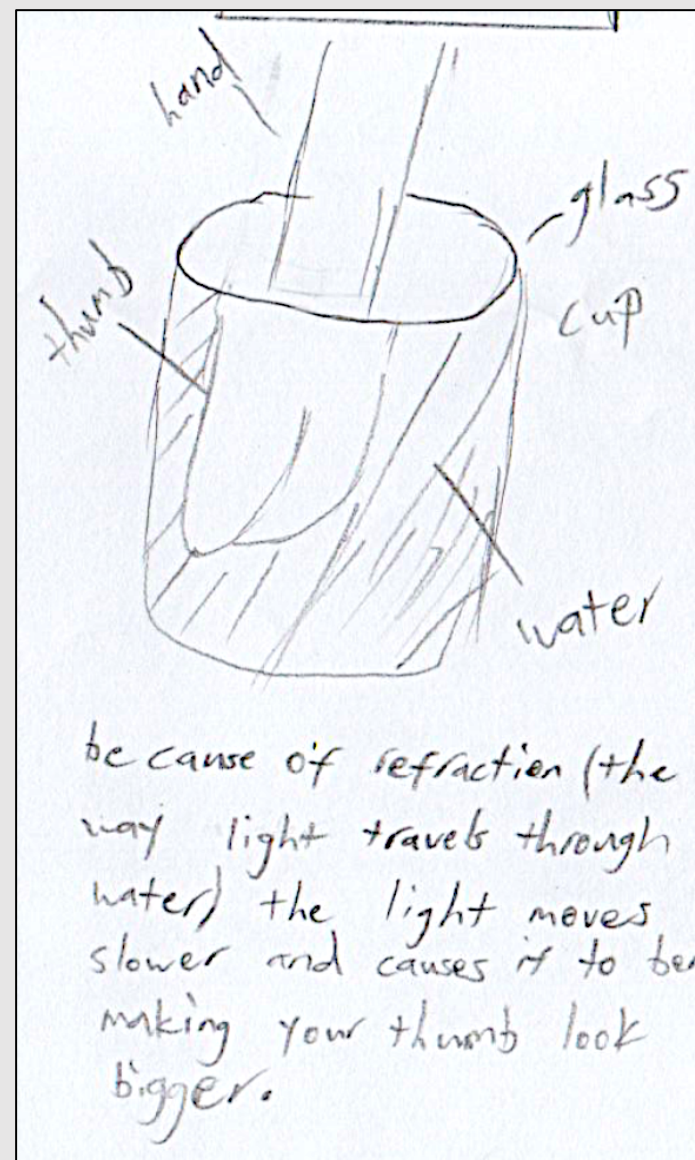 hand
glass
cup
thumb
water
because of refraction (the
way light travels through
water) the light moves
slower and causes it to
making your thumb look
bigger.